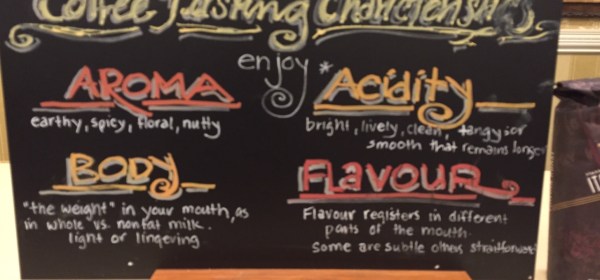 Coffee Tasting Characteristics
enjoy *
AROMA
earthy, spicy, floral, nutty
Acidity
bright, lively, clean, tangy or
smooth that remains longer
BODY
"the weight" in your mouth, as
in whole vs. nonfat milk.
light or lingering
FLAVOUR
Flavour registers in different
parts of the mouth.
Some are subtle others